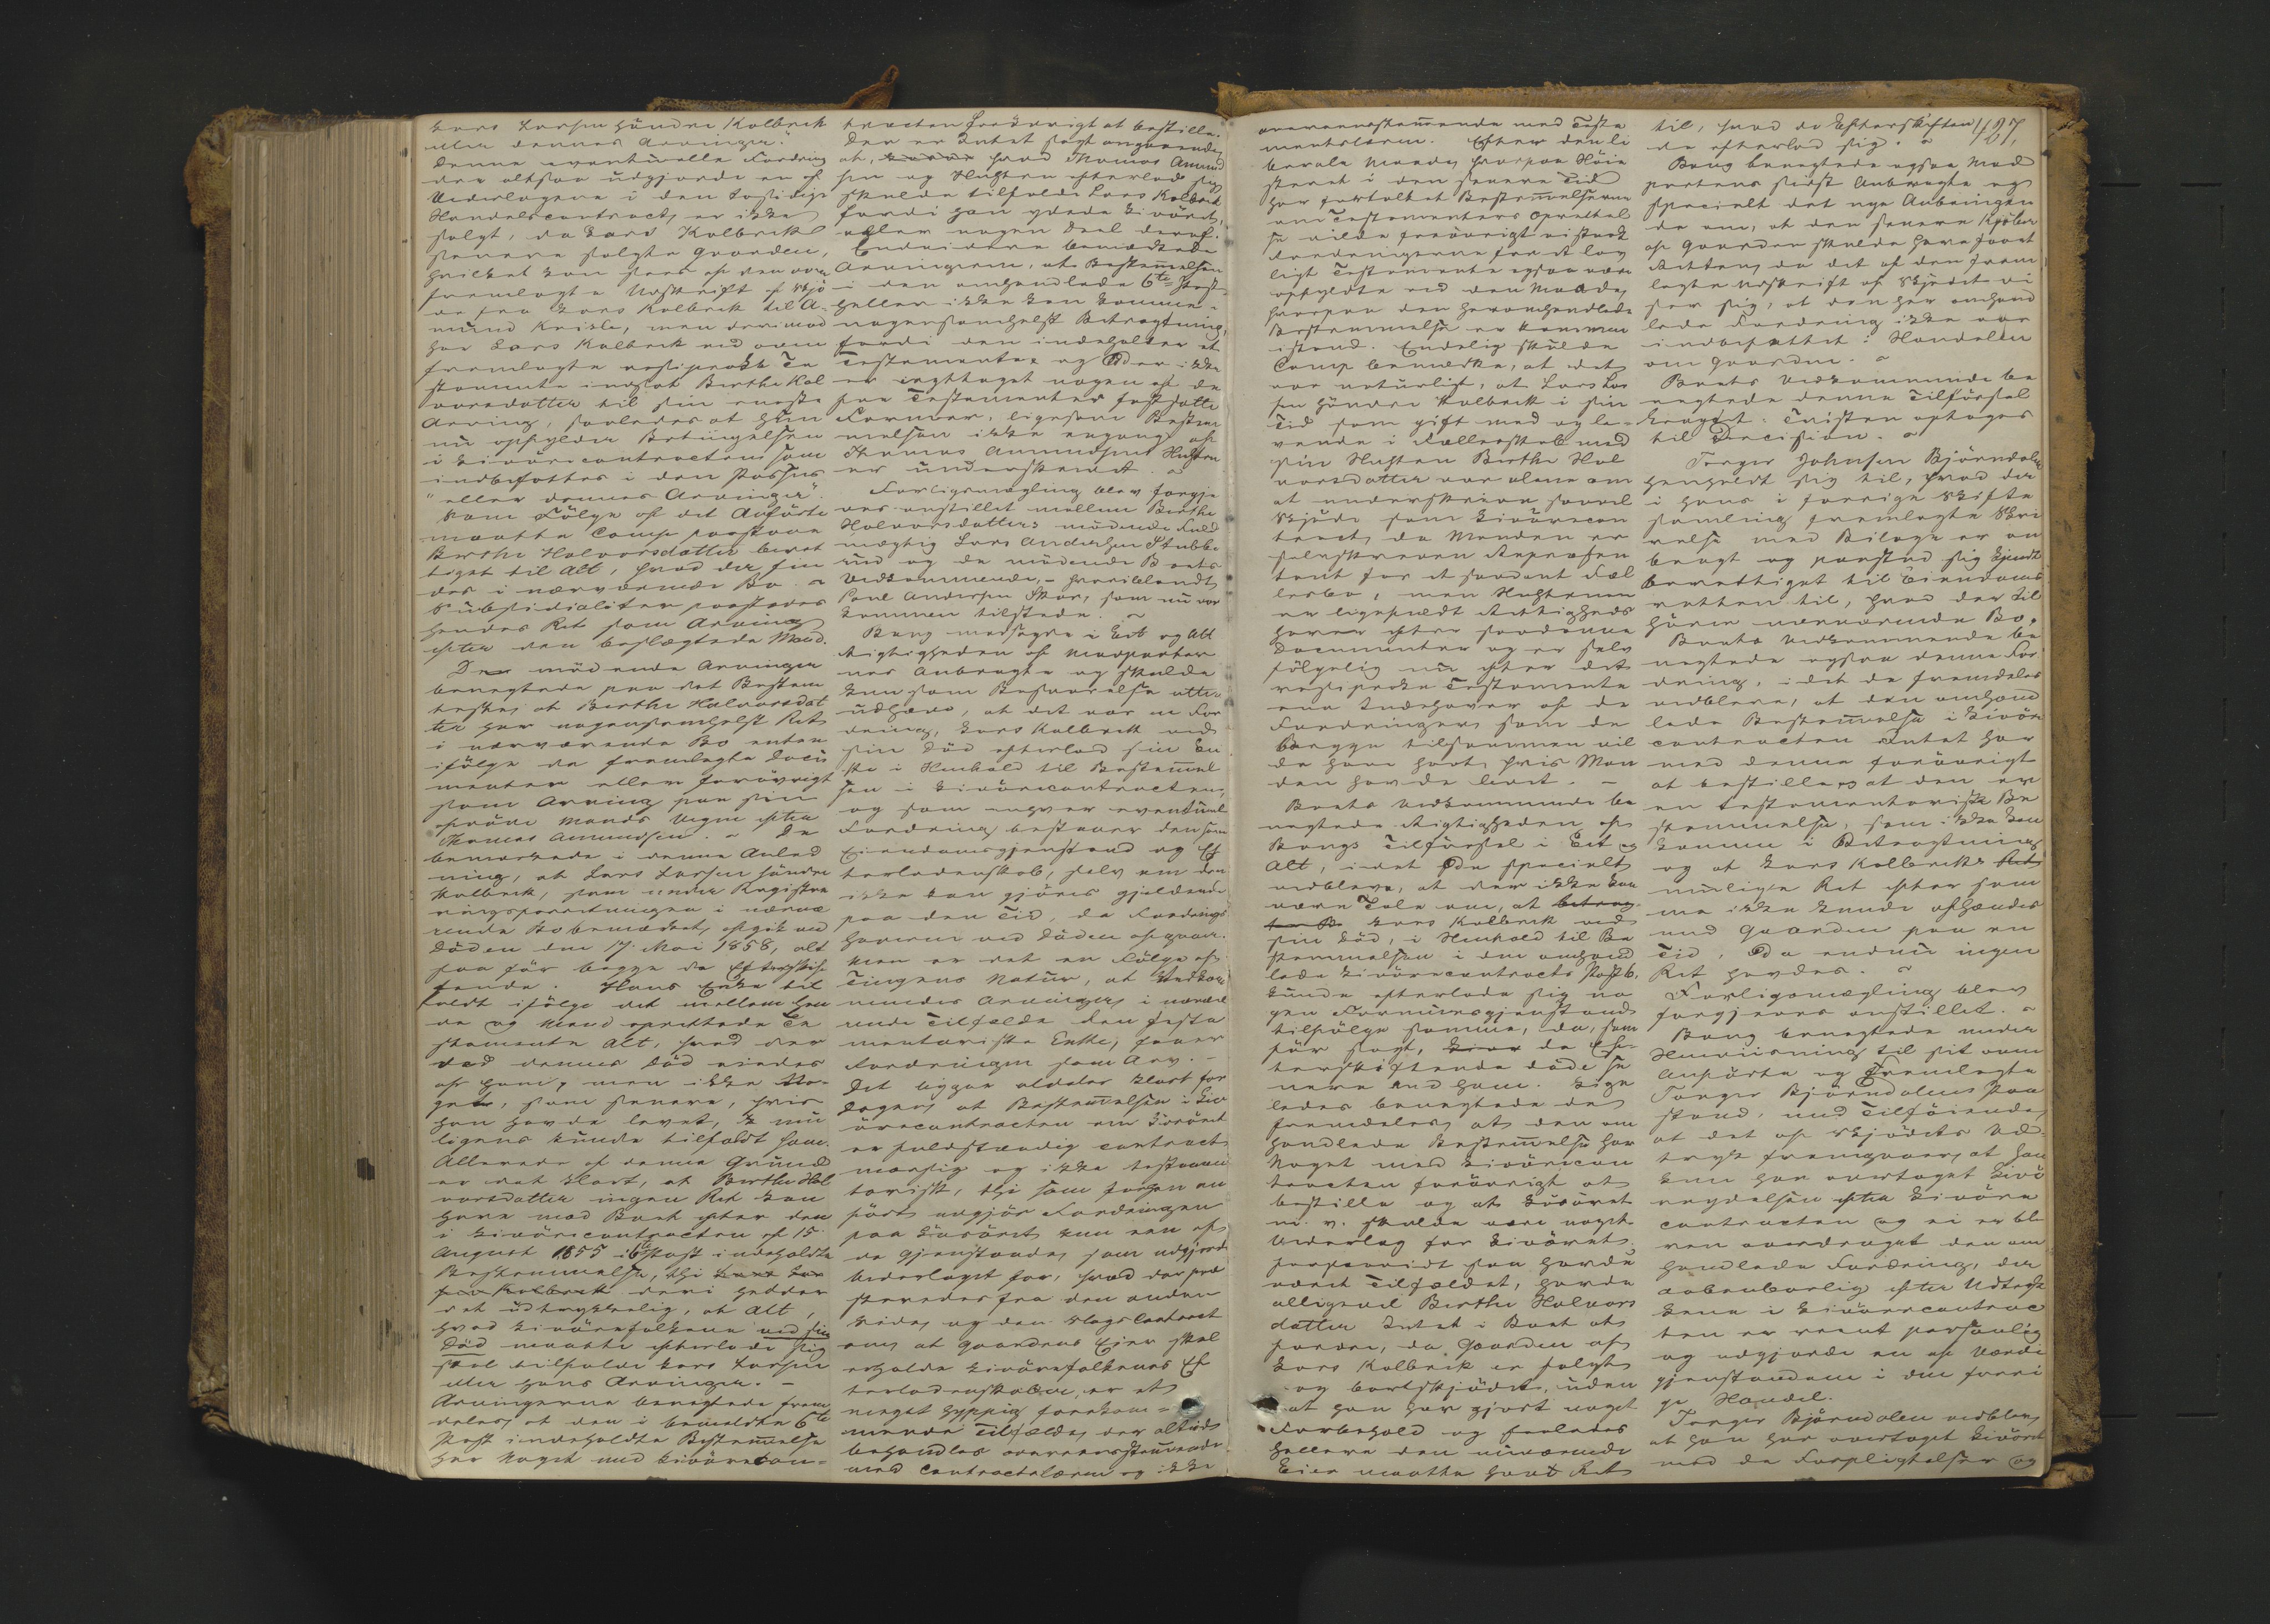 Lars Larsen söndre Kolbrek
eller dennes Arvinger."
Denne eventuelle Fordring
der altsaa udgjorde en af
Vederlagene i den tosidige
Handelscontract, er ikke
solgt, da Lars Kolbrek
senere solgte Gaarden,
hvilket kan sees af den ovm
fremlagte Udskrift af Skjö
de fra Lars Kolbrek til A-
mund, men derimod
har Lars Kolbrek ved ovm
fremlagte resiproke Te
stamente indsat Berthe Hal
vorsdatter til sin eneste
Arving, saaledes at hun
nu opfylder Betingelsen
i Livörecontracten som
indbefattes i den Passus
"eller dennes Arvinger".
Som Fölge af det Anförte
maatte Comp. paastaae
Berthe Halvorsdatter beret
tiget til Alt, hvad der fin
des i nærværende Bo.
Subsidialiter paastodes
hendes Ret som Arving
efter den beslægtede Mand.
De mödende Arvinger
benegtede paa det Bestem
teste, at Berthe Halvorsdat
ter har nogensomhelst Ret
i nærværende Bo enten
ifölge de fremlagte Docu
menter eller forövrigt
som Arving paa sin
afdöde Mands Vegne efter
Thomas Amundsen. De
bemærkede i denne Anled
ning, at Lars Larsen söndre
Kolbrek, som under Registre
ringsforretningen i nærvæ
rende Bo bemærket, afgik ved
Döden den 17 Mai 1858, alt
saa för begge de Efterskif
tende. Hans Enke til
faldt ifölge det mellem hen
de og Mand oprettede Te
stamente Alt, hvad der
ved dennes Död eiedes
af ham, men ikke No-
get, som senere, hvis
han havde levet, mu
ligens kunde tilfaldt ham.
Allerede af denne Grund
er det klart, at Berthe Hal
vorsdatter ingen Ret kan
have mod Boet efter den
i Livörecontracten af 15
August 1855 i 6te Post indeholdte
Bestemmelse, thi
deri hedder
det udtrykkelig, at Alt,
hvad Livörefolkene ved sin
Död maatte efterlade sig
skal tilfalde Lars Larsen
eller hans Arvinger. -
Arvingerne benegtede frem
deles, at den i bemeldte 6te
Post indeholdte Bestemmelse
har Noget med Livörecon-
tracten forövrigt at bestille.
Der er Intet sagt angaaende,
at, hvad Thomas Amund
sen og Hustru efterlode sig
skulde tilfalde Lars Kolbrek
fordi han ydede Livöret,
eller nogen Deel deraf.
Endvidere bemærkede
Arvingerne, at Bestemmelsen
i den omhandlede 6te Post
heller ikke kan komme i
nogensomhelst Betragtning,
fordi den indeholder et
Testamente og der ikke
er iagttaget nogen af de
for Testamenter fastsatte
Former, ligesom Bestem
melsen ikke engang af
Thomas Amundsens Hustru
er underskrevet.
Forligsmægling blev forgje
ves anstillet mellem Berthe
Halvorsdatters mödende Fuld
mægtig Lars Andersen Stubbe
rud og de mödende Boets
Vedkommende, - hveriblandt
Poul Andersen Moe, som nu var
kommen tilstede.
Bang modsagde i Eet og Alt
Rigtigheden af Modparter
nes Anbragte og skulde
kun som Besvarelse atter
udhæve, at det var en For
dring, Lars Kolbrek ved
sin Död efterlod sin En
ke i Henhold til Bestemmel
sen i Livörecontracten,
og som enhver eventuel
Fordring bestaaer den som
Eiendomsgjenstand og Ef
terladenskab, selv om den
ikke kan gjöres gjeldende
paa den Tid, da Fordrings
haveren ved Döden afgaaer.
Men er det en Fölge af
Tingens Natur, at Vedkom
mendes Arvinger, i nærvæ
rende Tilfælde den testa
mentariske Enke, faaer
Fordringen som Arv. -
Det ligger aldeles klart for
Dagen, at Bestemmelsen i Liv
örecontracten om Livöret
er fuldstændig contract
mæssig og ikke testamen
tarisk, thi som forhen an
fört udgjör Fordringen
paa Livöret kun een af
de Gjenstande, som udgjorde
Vederlaget for, hvad der præ
steredes fra den anden
Side, og den Slags Contract
om, at Gaardens Eier skal
erholde Livörefolkenes Ef
terladenskaber, er et
meget hyppig forekom-
mende Tilfælde, der altid
behandles overensstemmende
med Contractslæren og ikke
overensstemmende med Testa
mentslæren. Efter den li
berale Maade, hvorpaa Höie
steret i den senere Tid
har fortolket Bestemmelserne
om Testamenters Oprettel
se vilde forövrigt vistnok
Fordringerne for et lov
ligt Testamente ogsaa være
opfyldte ved den Maade,
hvorpaa den heromhandlede
Bestemmelse er kommen
istand. Endelig skulde
Comp. bemærke, at det
var naturligt, at Lars Lar
sen söndre Kolbrek i sin
Tid som gift med og le-
vende i Fællesskab med
sin Hustru Berthe Hal
vorsdatter var alene om
at underskrive saavel
Skjöde som Livörecon
tract, da Manden er
selvskreven Repræsen
tant for et saadant Fæl
lesbo, men Hustruen
er ligefuldt Rettigheds
haver efter saadanne
Documenter og er selv
fölgelig nu efter det
resiproke Testamente
ene Indehaver af de
Fordringer, som de
Begge tilsammen vil
de have havt, hvis Man
den havde levet. -
Boets Vedkommende be
negtede Rigtigheden af
Bangs Tilförsel i Eet og
Alt, idet De specielt
vedbleve, at der ikke kan
være Tale om, at
Lars Kolbrek ved
sin Död, i Henhold til Be
stemmelsen i den omhand
lede Livörecontracts Post 6,
kunde efterlade sig no
gen Formuesgjenstand
tilfölge samme, da, som
för sagt, de Ef-
terskiftende döde se
nere end ham. Lige
ledes benegtede de
fremdeles, at den om
handlede Bestemmelse har
Noget med Livörecon
tracten forövrigt at
bestille og at Livöret
m. v. skulde være noget
Vederlag for Livöret.
forsaavidt saa havde
været Tilfældet, havde
alligevel Berthe Halvors
datter Intet i Boet at
fordre, da Gaarden af
Lars Kolbrek er solgt
og bortskjödet, uden
at han har gjort noget
Forbehold og saaledes
hellere den nuværende
Eier maatte havt Ret
til, hvad de Efterskiften 427,
de efterlod sig.
Bang benegtede ogsaa Mod
partens sidst Anbragte og
specielt det nye Anbringen
de om, at den senere Kjöber
af Gaarden skulde have faaet
Retten, da det af den frem
lagte Udskrift af Skjödet vi
ser sig, at den her omhand
lede Fordring ikke var
indbefattet i Handelen
om Gaarden.
Boets Vedkommende be
negtede denne Tilförsel
. Tvisten optoges
til Decision.
Torger Johnsen Björndalen
henholdt sig til, hvad der
i hans i forrige Skifte
samling fremlagte Skri
velse med Bilage er an
bragt og paastod sig kjendt
berettiget til Eiendoms
retten til, hvad der til
hörer nærværende Bo.
Boets Vedkommende be
negtede ogsaa denne For
dring, idet de fremdeles
vedbleve, at den omhand
lede Bestemmelse i Livöre
contracten Intet har
med denne forövrigt
at bestille, at den er
en testamentarisk Be
stemmelse, som ikke kan
komme i Betragtning
og at Lars Kolbreks
mulige Ret efter sam
me ikke kunde afhændes
med Gaarden paa en
Tid, da endnu ingen
Ret havdes.
Forligsmægling blev
forgjeves anstillet.
Bang benegtede under
Henviisning til sit ovm
Anförte og Fremlagte
Torger Björndalens Paa
stand, med Tilföiende,
at det af Skjödets Ud
tryk fremgaaer, at han
kun har overtaget Livö
reydelsen efter Livöre
contracten og ei er ble
ven overdraget den om
handlede Fordring, der
aabenbarlig efter Udtryk
kene i Livörecontrac
ten er reent personlig
og udgjorde en af Værdi
gjenstandene i den forri
ge Handel.
Torger Björndalen vedblev,
at han har overtaget Livöret
med de Forpligtelser og